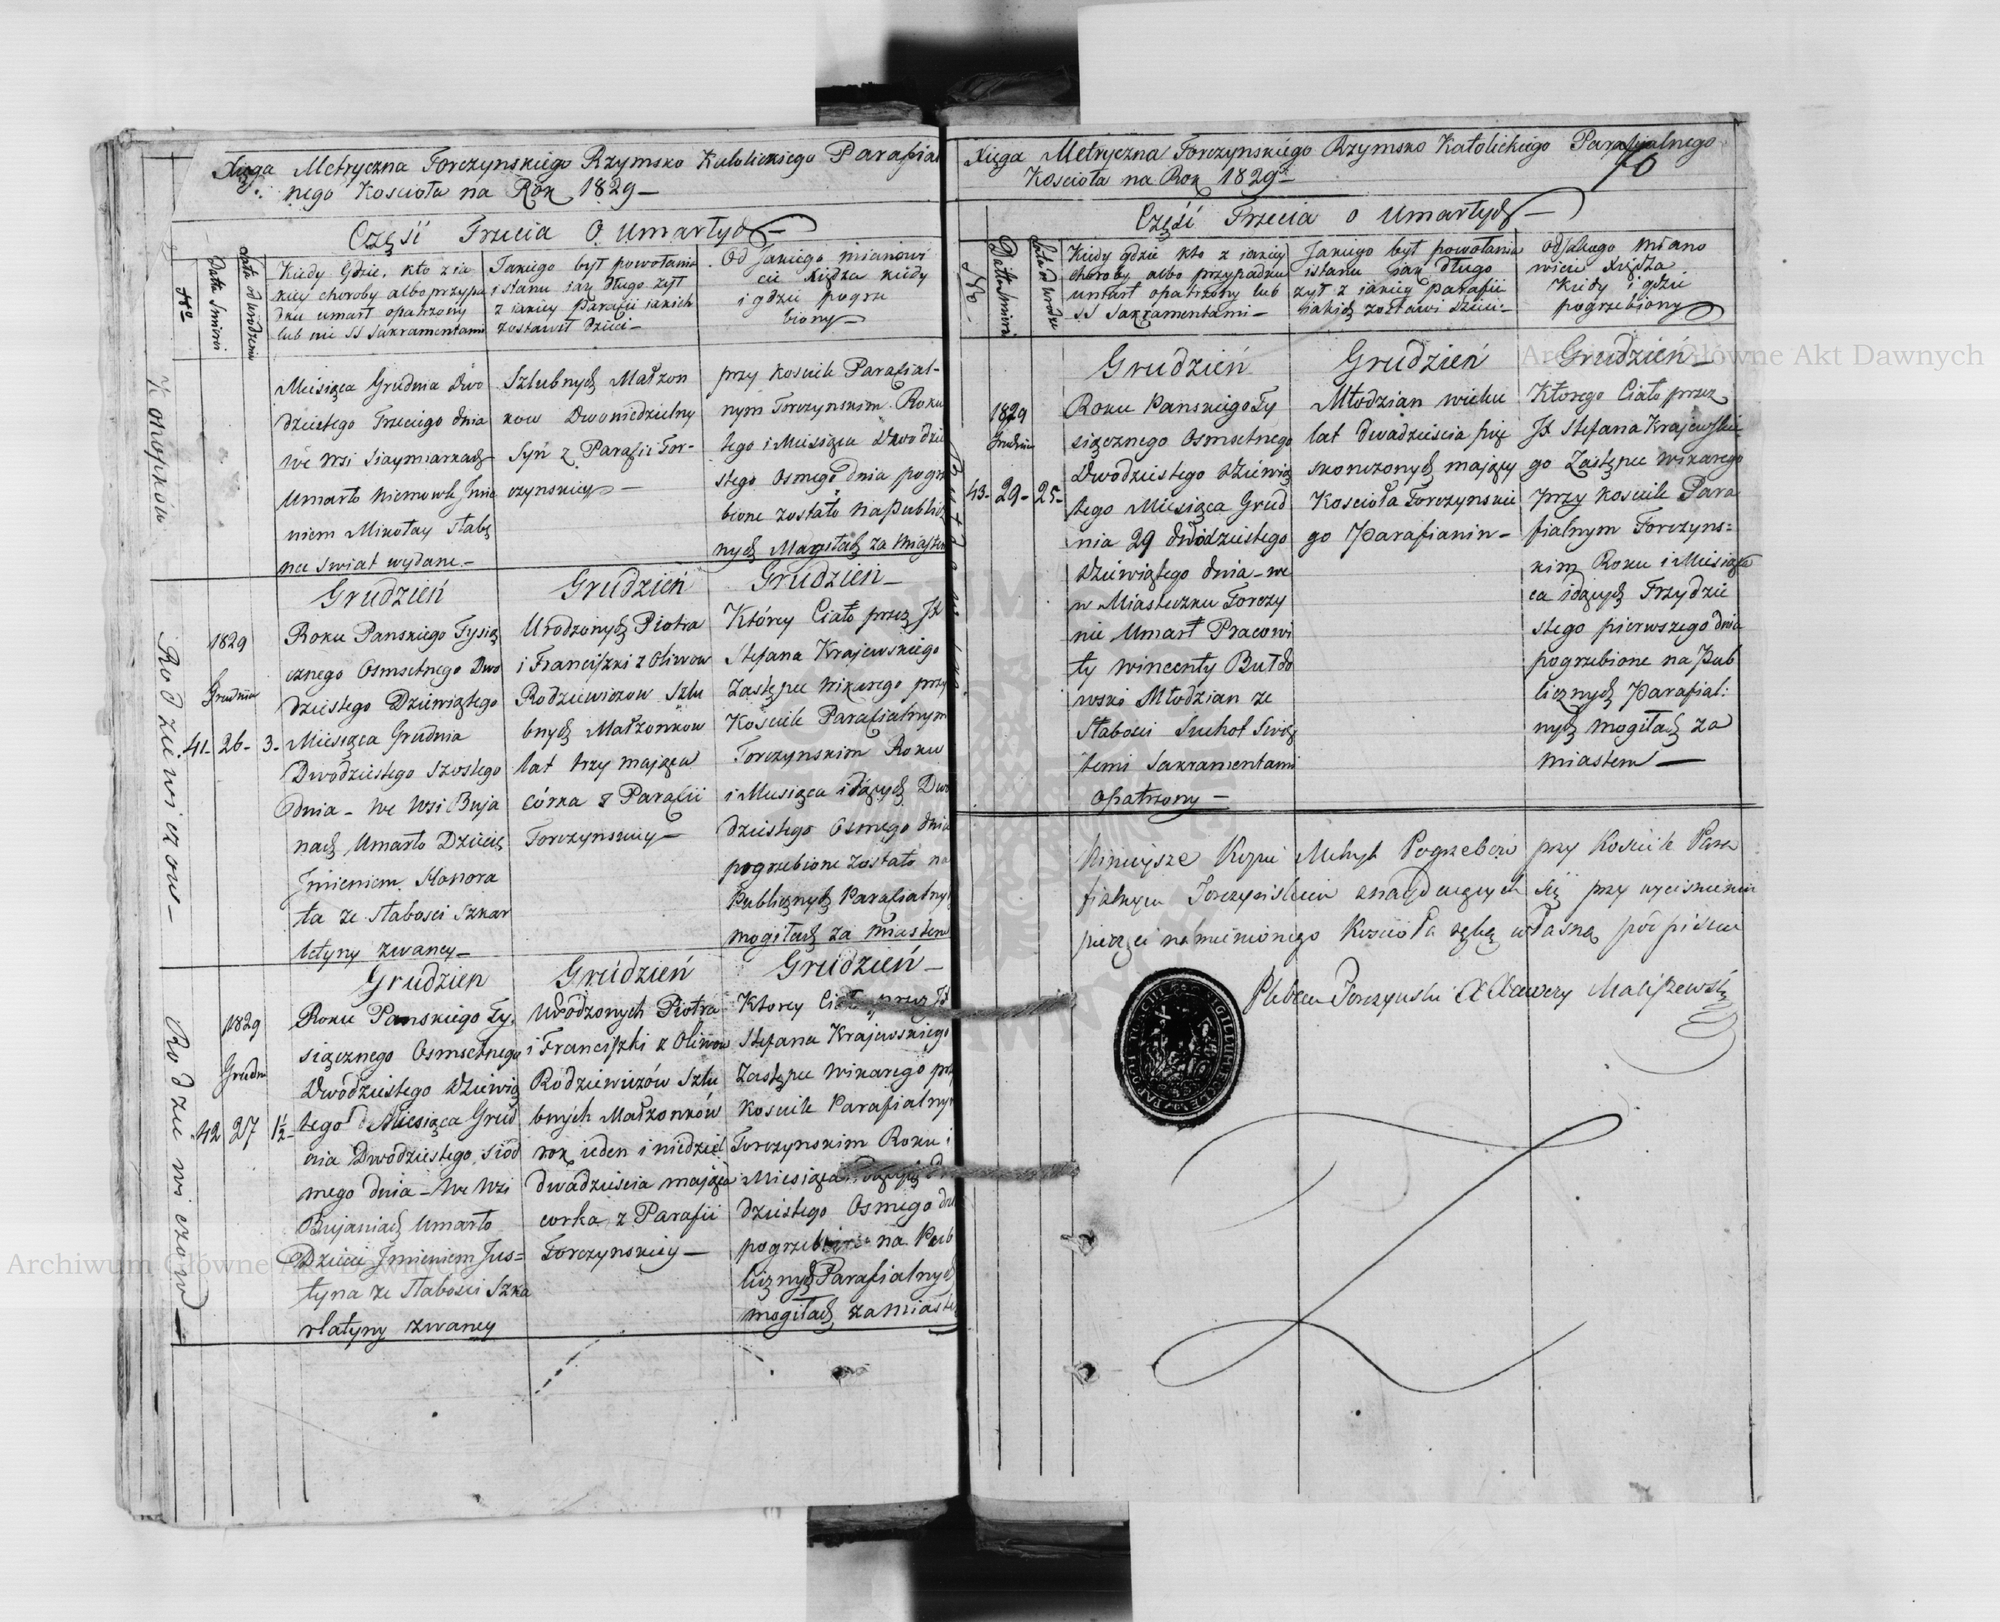 Xięga Metryczna Torczynskiego Rzymsko Katolickiego Parafial
nego Kościoła na Rok 1829 —
Część Trzecia O Umarłych —
No
Datta Smierci
Lata od urodzenia
Kiedy Gdzie, kto z ia
kiey choroby albo przypa
dku umarł opatrzony
lub nie SS Sakramentami
Jakiego był powołania
i stanu iak długo żył
z iakiey Parafii iakich
zostawił dzieci —
Od Jakiego mianowi
cie Xiędza kiedy
i gdzie pogrze
biony —
Konopków
Miesiąca Grudnia Dwo
dziestego Trzeciego dnia
we Wsi Siaymiarkach
Umarło Niemowle Imie
niem Mikołay słabe
na swiat wydane —
Szlubnych Małzon
kow Dwoniedzielny
Syn z Parafii Tor-
czynskiey —
przy kosciele Parafial-
nym Torczynskim Roku
tego i Miesiąca Dwodzie
stego Osmego dnia pogrze
bione zostało na Publicz
nych Mogiłach za Miastem
Rodziewiczow —
1829
Grudnia
41. 26 - 3 -
Grudzień
Roku Panskiego Tysią
cznego Osmsetnego Dwo
dziestego Dziewiątego
Miesiąca Grudnia
Dwódziestego Szostego
dnia — We Wsi Buja
nach Umarło Dziecie
Jmieniem Honora
ta ze słabosci Szkar
latyny zwaney —
Grudzień
Urodzonych Piotra
i Franciszki z Oliwow
Rodziewiczow Szlu
bnych Małzonkow
lat trzy maiąca
córka z Parafii
Torczynskiey —
Grudzien —
Którey Ciało przez JX
Stefana Krajewskiego
Zastępce Wikarego przy
Kosciele Parafialnym
Torczynskim Roku
i Miesiąca idących Dwo
dziestego Osmego dnia
pogrzebione zostało na
Publicznych Parafialnych
mogiłach za Miastem
Rodziewiczow —
1829
Grudn
42 27 1½ -
Grudzien
Roku Panskiego Ty,
siącznego Osmsetnego
Dwódziestego Dziewią
tego Miesiąca Grud
nia Dwódziestego siod
mego dnia — We Wsi
Bujaniach Umarło
Dziecie Jmieniem Jus=
tyna ze słabosci Szka
rlatyny zwaney
Grudzień
Urodzonych Piotra
i Franciszki z Oliwow
Rodziewiczów Szlu
bnych Małzonków
rok ieden i niedziel
dwadziescia maiąca
corka z Parafii
Torczynskiey —
Grudzień —
Ktorey Ciało przez JX
Stefana Krajewskiego
Zastępce Wikarego przy
Kosciele Parafialnym
Torczynskim Roku i
Miesiąca idących Dwo
dziestego Osmego dnia
pogrzebione na Pub
licznych Parafialnych
mogiłach za Miastem
Xięga Metryczna Torczynskiégo Rzymsko Katolickiego Parafialnego
Kościoła na Rok 1829 —
70
Część Trzecia o Umarłych —
No
Datta Smierci
Lata od urodze
Kiedy gdzie kto z iakiey
choroby albo przypadku
umarł opatrzony lub
SS Sakramentami —
Jakiego był powołania
i stanu iak długo
żył z iakiey parafii
iakich zostawi dzieci —
Od Jakiego miano
wicie Xiędza
kiedy i gdzie
pogrzebiony
Butdowski
1829
Grudnia
43 - 29 - 25 -
Grudzień
Roku Panskiego Ty
siącznego Osmsetnego
Dwódziestego Dziewią
tego Miesiąca Grud
nia 29 dwódziestego
Dziewiątego dnia — we
w Miasteczku Torczy
nie Umarł Pracowi
ty Wincenty Butdo
wski Młodzian ze
słabosci Suchot Swię
temi Sakramentami
opatrzony —
Grudzień
Młodzian wieku
lat dwadziescia pię
skonczonych maiący
Kościoła Torczynskie
go Parafianin —
Grudzień —
Którego Ciało przez
JX Stefana Krajewskie
go Zastępce Wikarego
przy Kosciele Para
fialnym Torczyns=
kim Roku i Miesią
ca idących Trzydzie
stego pierwszego dnia
pogrzebione na Pub
licznych Parafial:
nych mogiłach za
miastem —
Ninieysze Kopie Metryk Pogrzebow przy Kościele Para
fialnym Torczynskim znayduiących się przy wycisnieniu
pieczęci námienionego Kościoła ręką własną podpisuie
Pleban Torczynski X Xawery Maliszewski
Archiwum Główne Akt Dawnych
Archiwum Główne Akt Dawnych